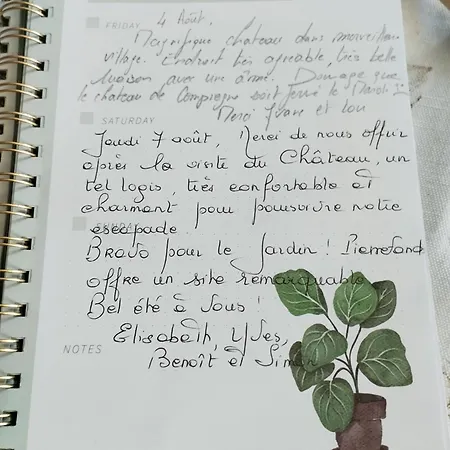 FRIDAY 4 Août.
Magnifique château dans merveilleux
village. Endroit très agréable, très belle
maison avec une âme. Dommage que
le château de Compiègne soit fermé le Mardi
Merci Yvan et Lou
SATURDAY
Jeudi 7 août, Merci de nous offrir
après la visite du Château, un
tel logis, très confortable et
charmant pour poursuivre notre
SUNDAY
escapade
Bravo pour le Jardin ! Pierrefond
offre un site remarquable
Bel été à Vous !
Elisabeth, Yves,
NOTES
Benoît et Simon